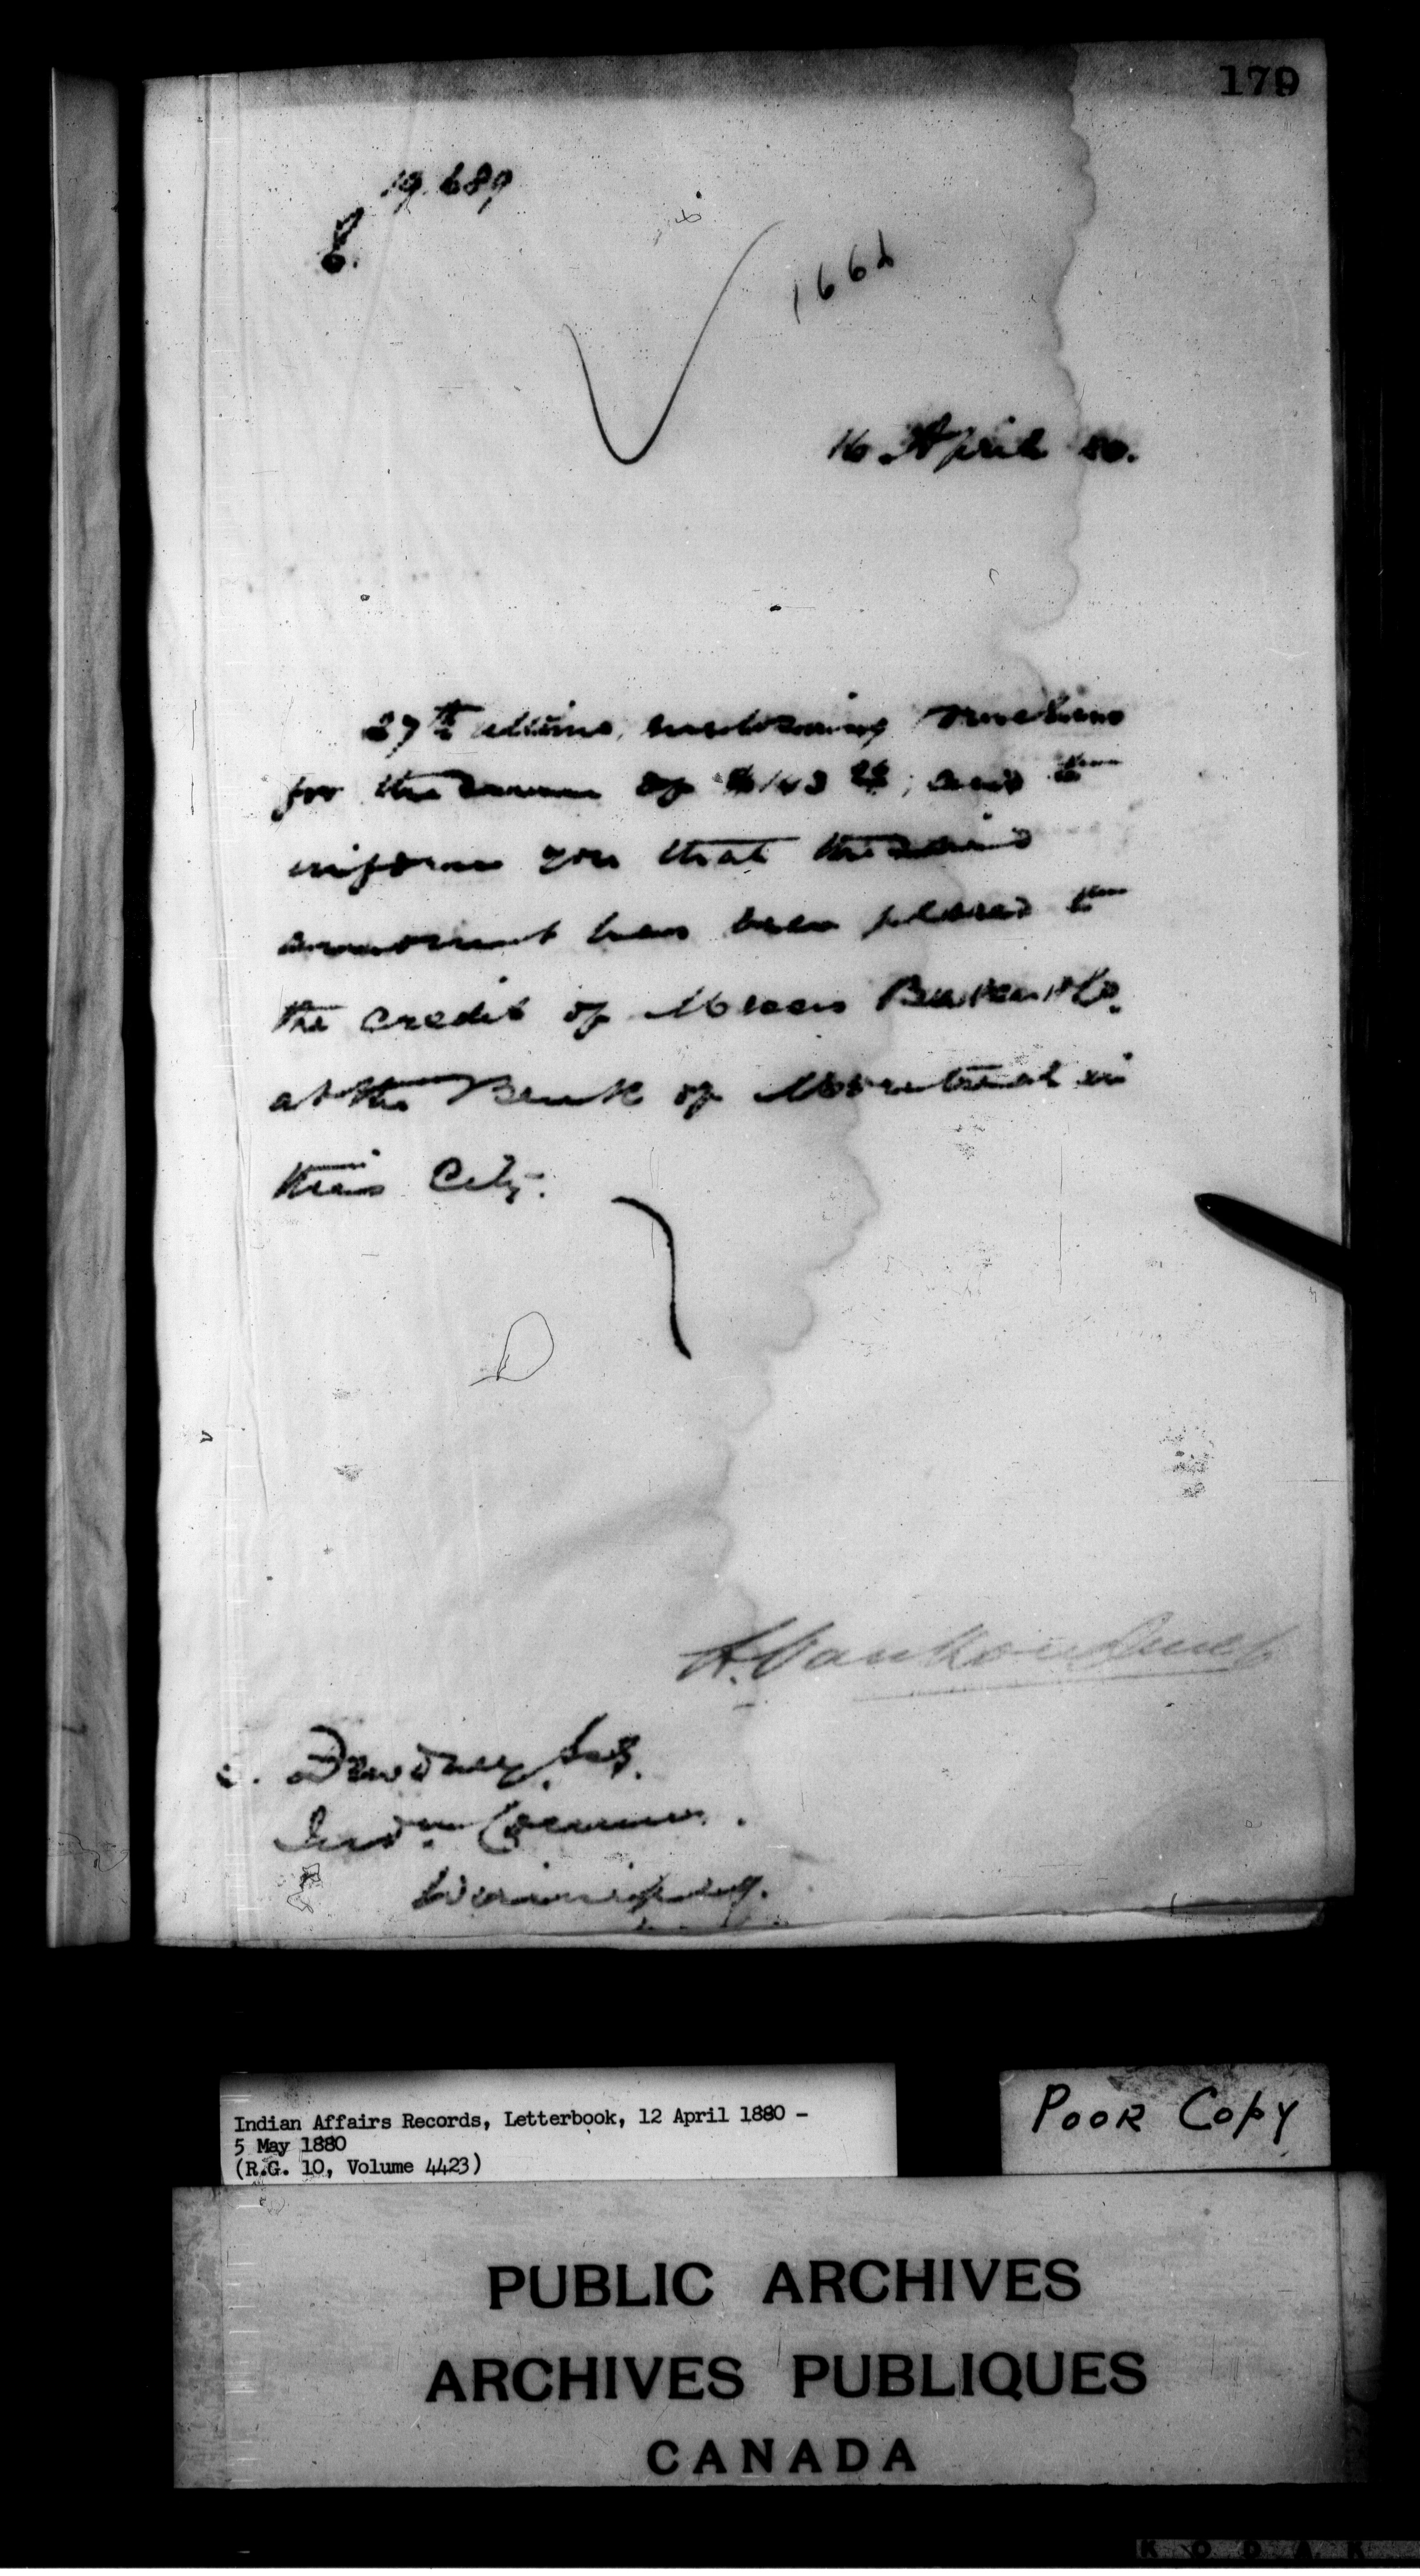 179
19.689
166
16 April 80.
27th ultimo, enclosing
for the sum of $143 ; and to
inform you that the said
amount has been placed to
the credit of Messrs & Co.
at the Bank of Montreal in
this City.
L. VanKoughnet
E. Dewdney Esq.
Indn. Commr.
Winnipeg.
Indian Affairs Records, Letterbook, 12 April 1880 -
5 May 1880
(R.G. 10, Volume 4423)
POOR COPY
PUBLIC ARCHIVES
ARCHIVES PUBLIQUES
CANADA
KODAK